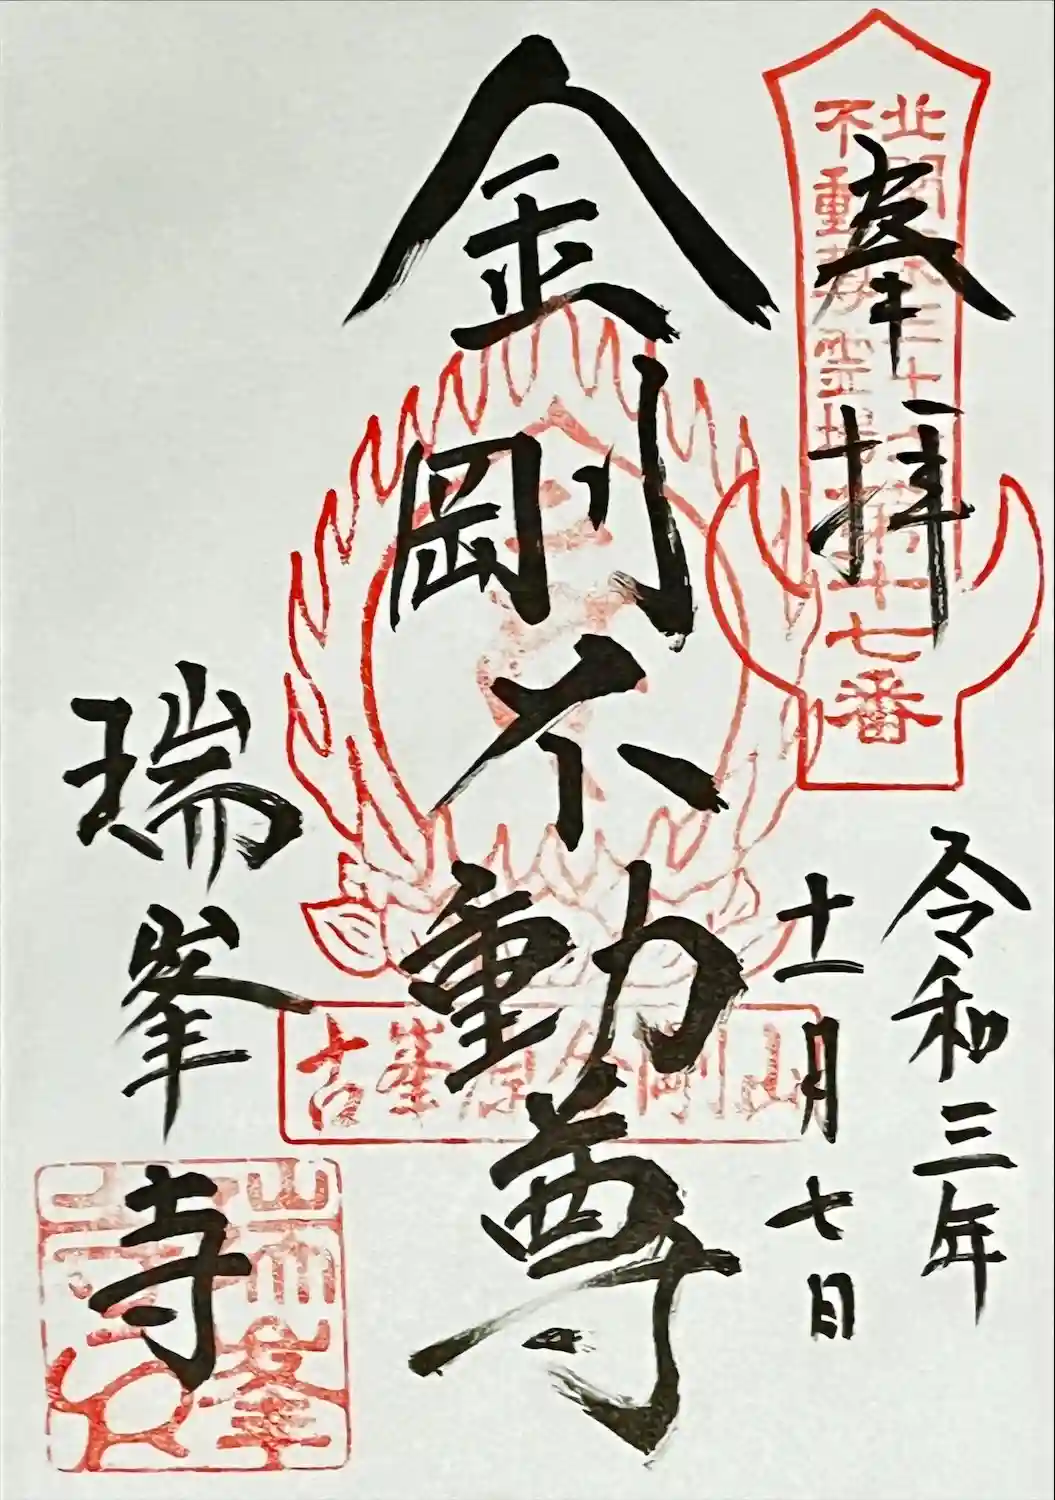 奉拝
北関東三十六
不動尊霊場
第十七番
令和三年
十一月七日
金剛不動尊
古峯原金剛山
瑞峯寺